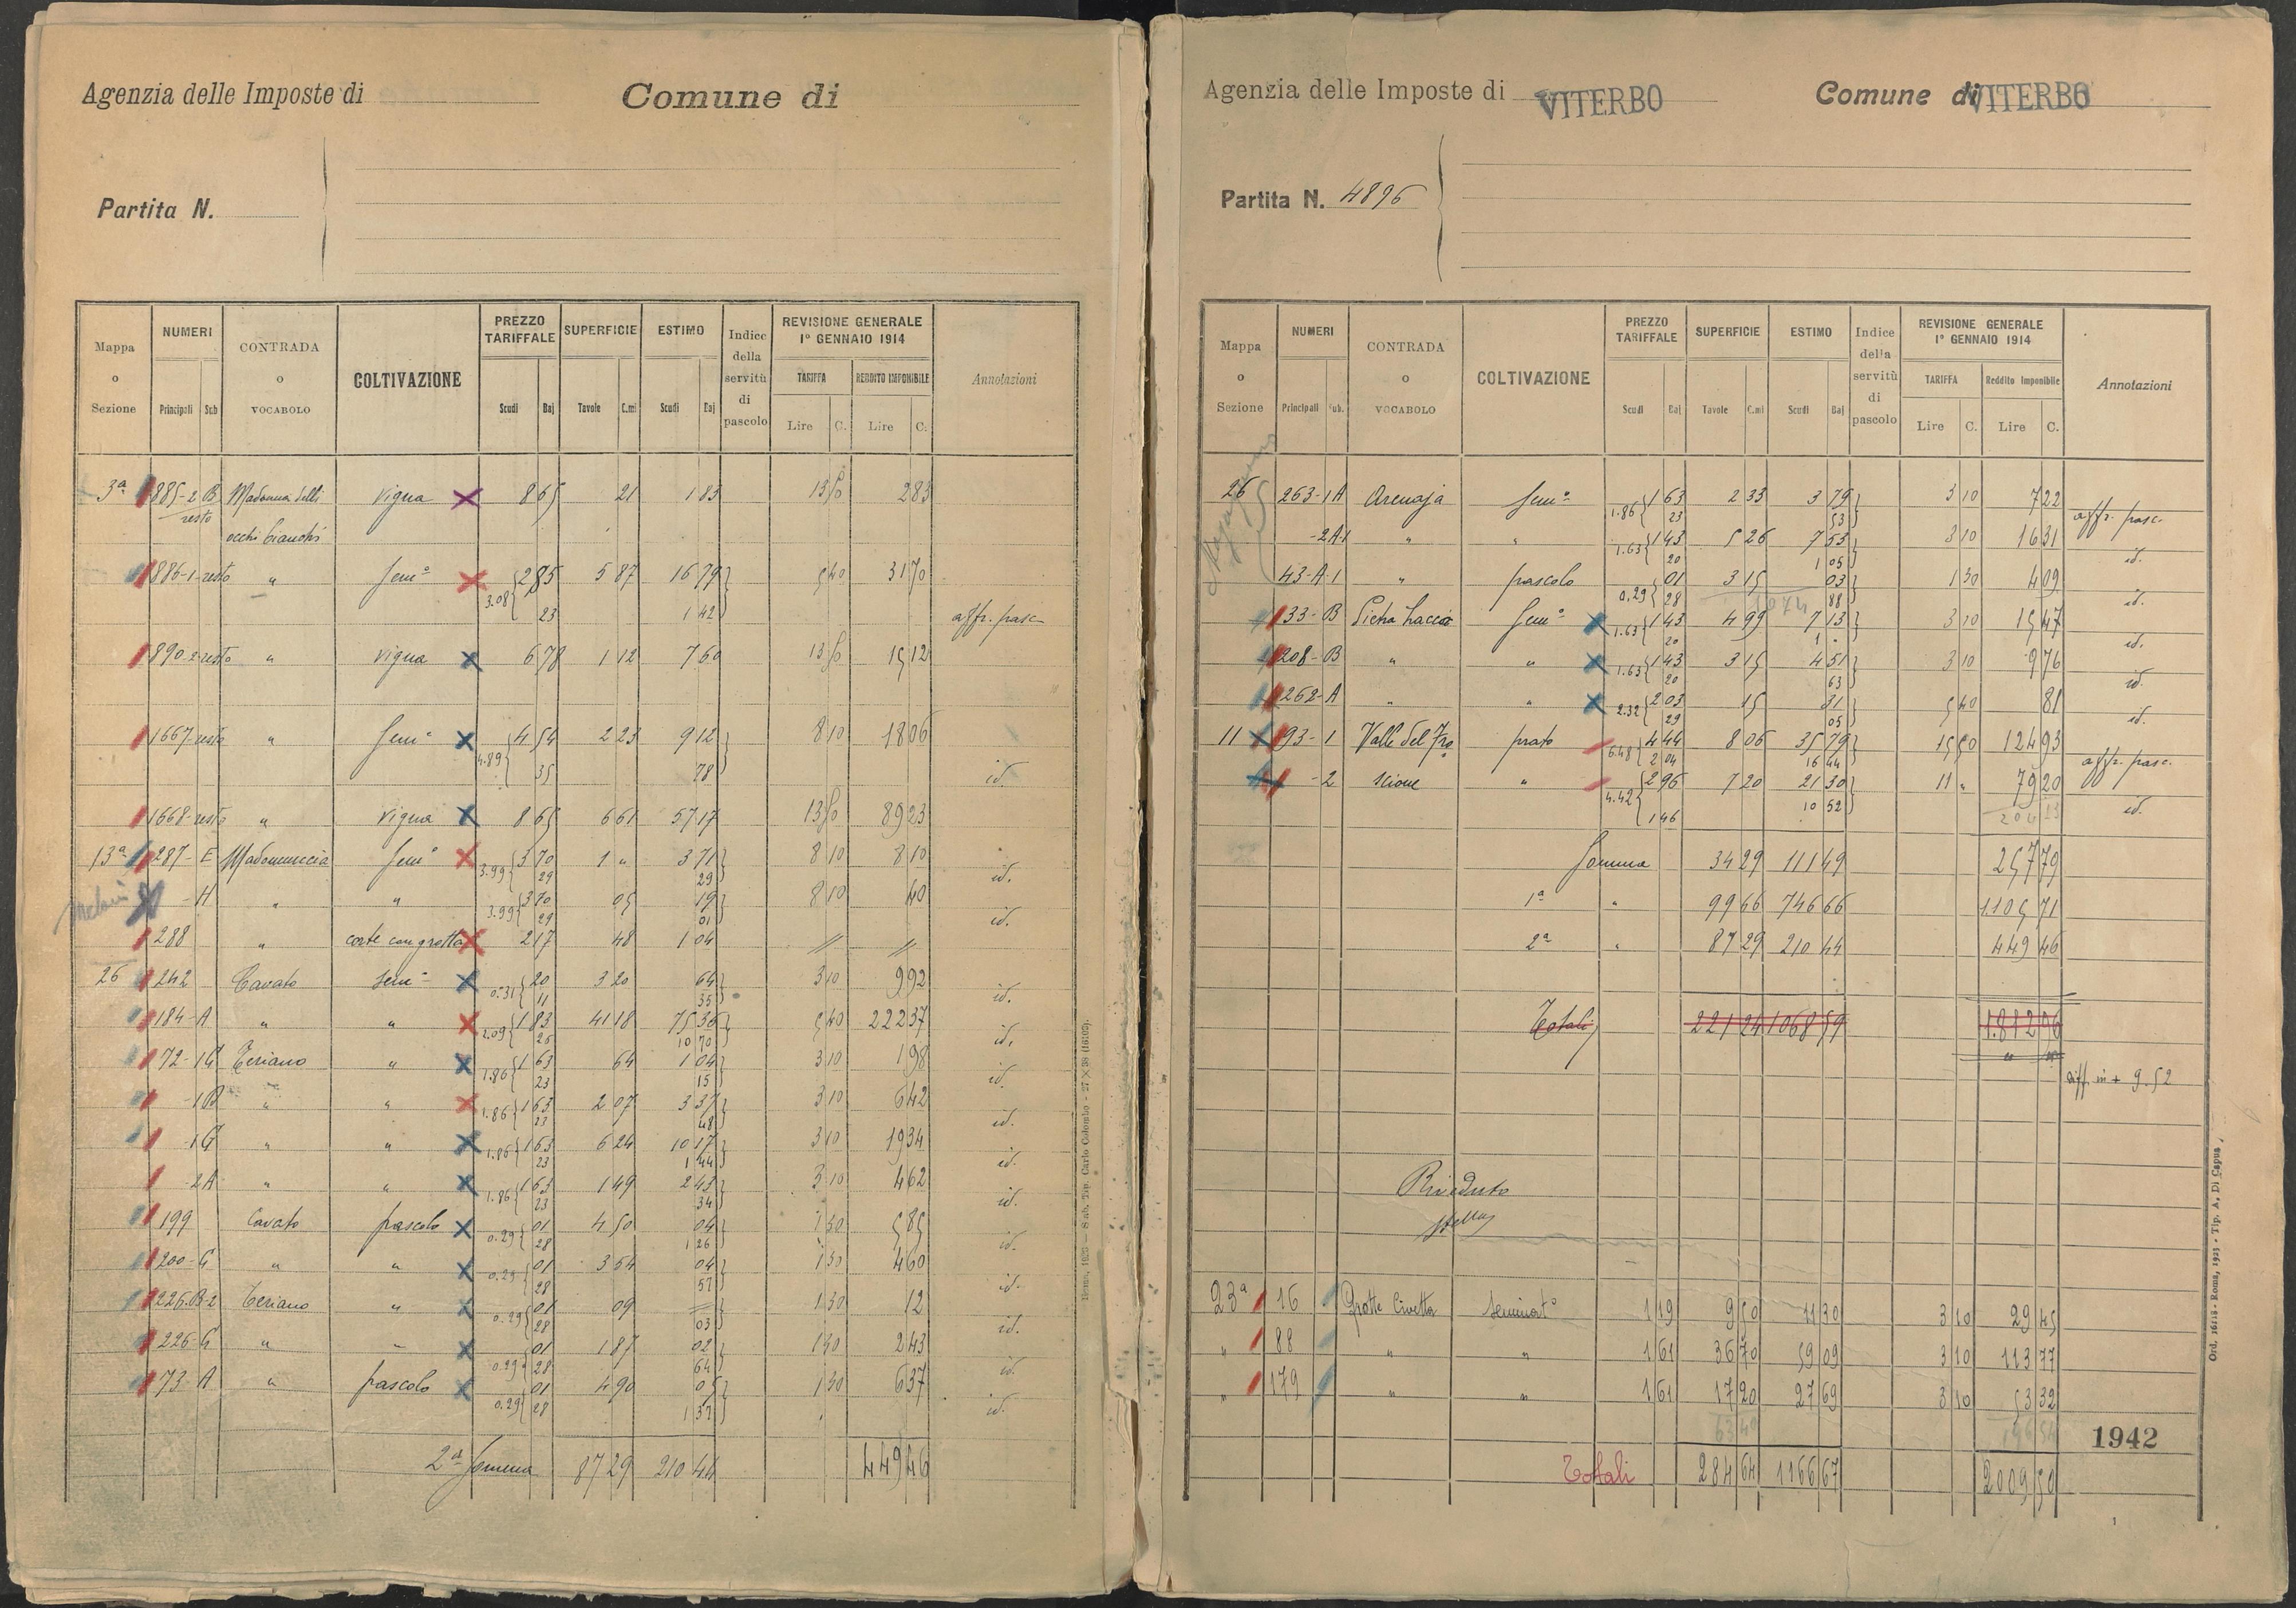 Agenzia delle Imposte di
Comune di
Partita N.
Mappa o Sezione | NUMERI Principali Sub | CONTRADA O VOCABOLO | COLTIVAZIONE | PREZZO TARIFFALE Scudi Baj | SUPERFICIE Tavole C.mi | ESTIMO Scudi Baj | Indice della servitù di pascolo | REVISIONE GENERALE 1° GENNAIO 1914 TARIFFA Lire C. REDDITO IMPONIBILE Lire C. | Annotazioni
3ª 885-2 B Madonna delli vigna 8 65 21 1 83 13 50 2 83
resto
occhi bianchi
886-1-resto " Sem° 3.08 2 85 5 87 16 79 5 40 31 70
23 1 42 aff. pasc.
890-2 resto " vigna 6 78 1 12 7 60 13 50 15 12
1667-resto " Sem° 4.89 4 54 2 23 9 12 8 10 18 06
35 78 id.
1668-resto " vigna 8 65 6 61 57 17 13 50 89 23
13ª 287-E Madonnuccia Sem° 3.99 3 70 1 " 3 71 8 10 8 10
29 29 id.
-H " " 3.99 3 70 05 19 8 10 40
29 01 id.
288 " corte con grotta 2 17 48 1 04 // //
26 242 Cavato Sem° 0.31 20 3 20 64 3 10 9 92
11 35 id.
184-A " " 2.09 1 83 41 18 75 36 5 40 222 37
26 10 70 id.
72-1C Teriano " 1.86 1 63 64 1 04 3 10 1 98
23 15 id.
-1B " " 1.86 1 63 2 07 3 37 3 10 6 42
23 48 id.
-1C " " 1.86 1 63 6 24 10 17 3 10 19 34
23 1 44 id.
2A " " 1.86 1 63 1 49 2 43 3 10 4 62
23 34 id.
199 Cavato pascolo 0.29 01 4 50 04 1 30 5 85
28 1 26 id.
200-C " " 0.29 01 3 54 04 1 30 4 60
28 id.
226-B-2 Teriano " 0.29 01 09 = 1 30 12
28 03 id.
226-C " " 0.29 01 1 87 02 1 30 2 43
28 id.
73-A " pascolo 0.29 01 4 90 05 1 30 6 37
28 1 37 id.
2ª Somma 87 29 210 44 449 46
Roma, 1923 — Stab. Tip. Carlo Colombo - 27 × 38
Agenzia delle Imposte di VITERBO
Comune di VITERBO
Partita N. 4896
Mappa o Sezione | NUMERI Principali Sub. | CONTRADA O VOCABOLO | COLTIVAZIONE | PREZZO TARIFFALE Scudi Baj | SUPERFICIE Tavole C.mi | ESTIMO Scudi Baj | Indice della servitù di pascolo | REVISIONE GENERALE 1° GENNAIO 1914 TARIFFA Lire C. Reddito Imponibile Lire C. | Annotazioni
26 263-1A Arenaja Sem° 1.86 1 63 2 33 3 79 3 10 7 22
23 53 aff. pasc.
-2A-1 " " 1.63 1 43 5 26 7 53 3 10 16 31
20 1 05 id.
43-A-1 " pascolo 0.29 01 3 15 03 1 30 4 09
28 88 id.
33-B Sem° 1.63 1 43 4 99 7 13 3 10 15 47
20 1 - id.
208-B " " 1.63 1 43 3 15 4 51 3 10 9 76
20 63 id.
262-A " " 2.32 2 03 15 31 5 40 81
29 05 id.
11 93-1 Valle del Fro prato 6.48 4 44 8 06 35 79 15 50 124 93
2 04 16 44 aff. pasc.
-2 scione " 4.42 2 96 7 20 21 30 11 " 79 20
1 46 10 52 id.
Somma 34 29 111 49 257 79
1ª " 99 66 746 66 1105 71
2ª " 87 29 210 44 449 46
Totali 221 24 1068 59 1.812 96
diff. in + 9.52
Riveduto
23ª 16 Grotte Civetta Seminat° 1 19 9 50 11 30 3 10 29 45
" 88 " " 1 61 36 70 59 09 3 10 113 77
" 179 " " 1 61 17 20 27 69 3 10 53 32
63 40
1942
Totali 284 64 1166 67 2009 50
Ord. 16118 - Roma, 1923 - Tip. A. Di Capua